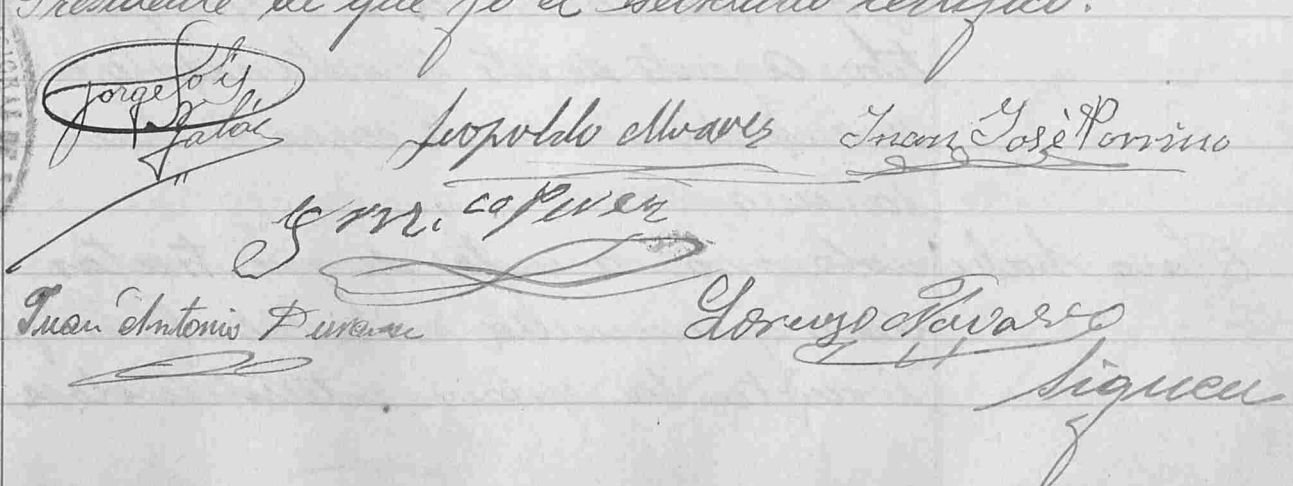 Presidente de que yo el Secretario certifico.
Jorge Solís
Galán
Leopoldo Alvarez Juan José Porrino
Fran.co Perez
Juan Antonio Duran
Lorenzo Navarro
Siguen